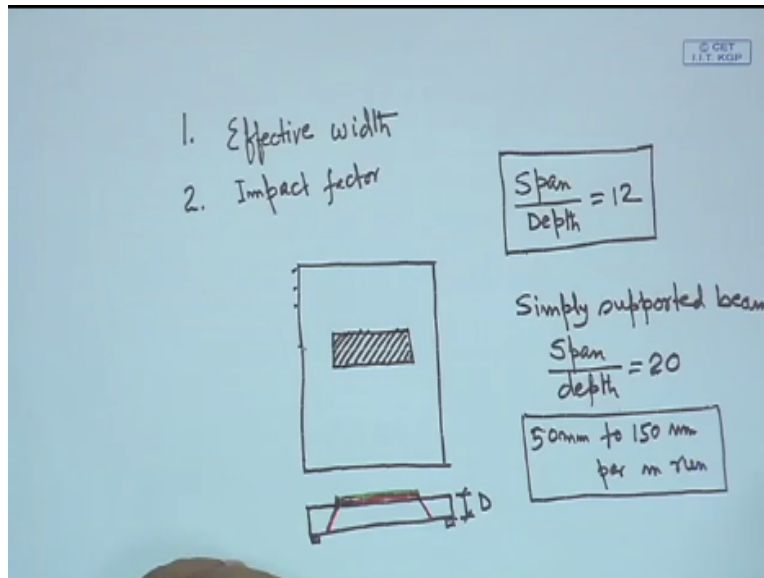 © CET
I.I.T. KGP
1. Effective width
2. Impact factor
Span
Depth = 12
Simply supported beam
Span
depth = 20
50mm to 150 mm
per m run
D